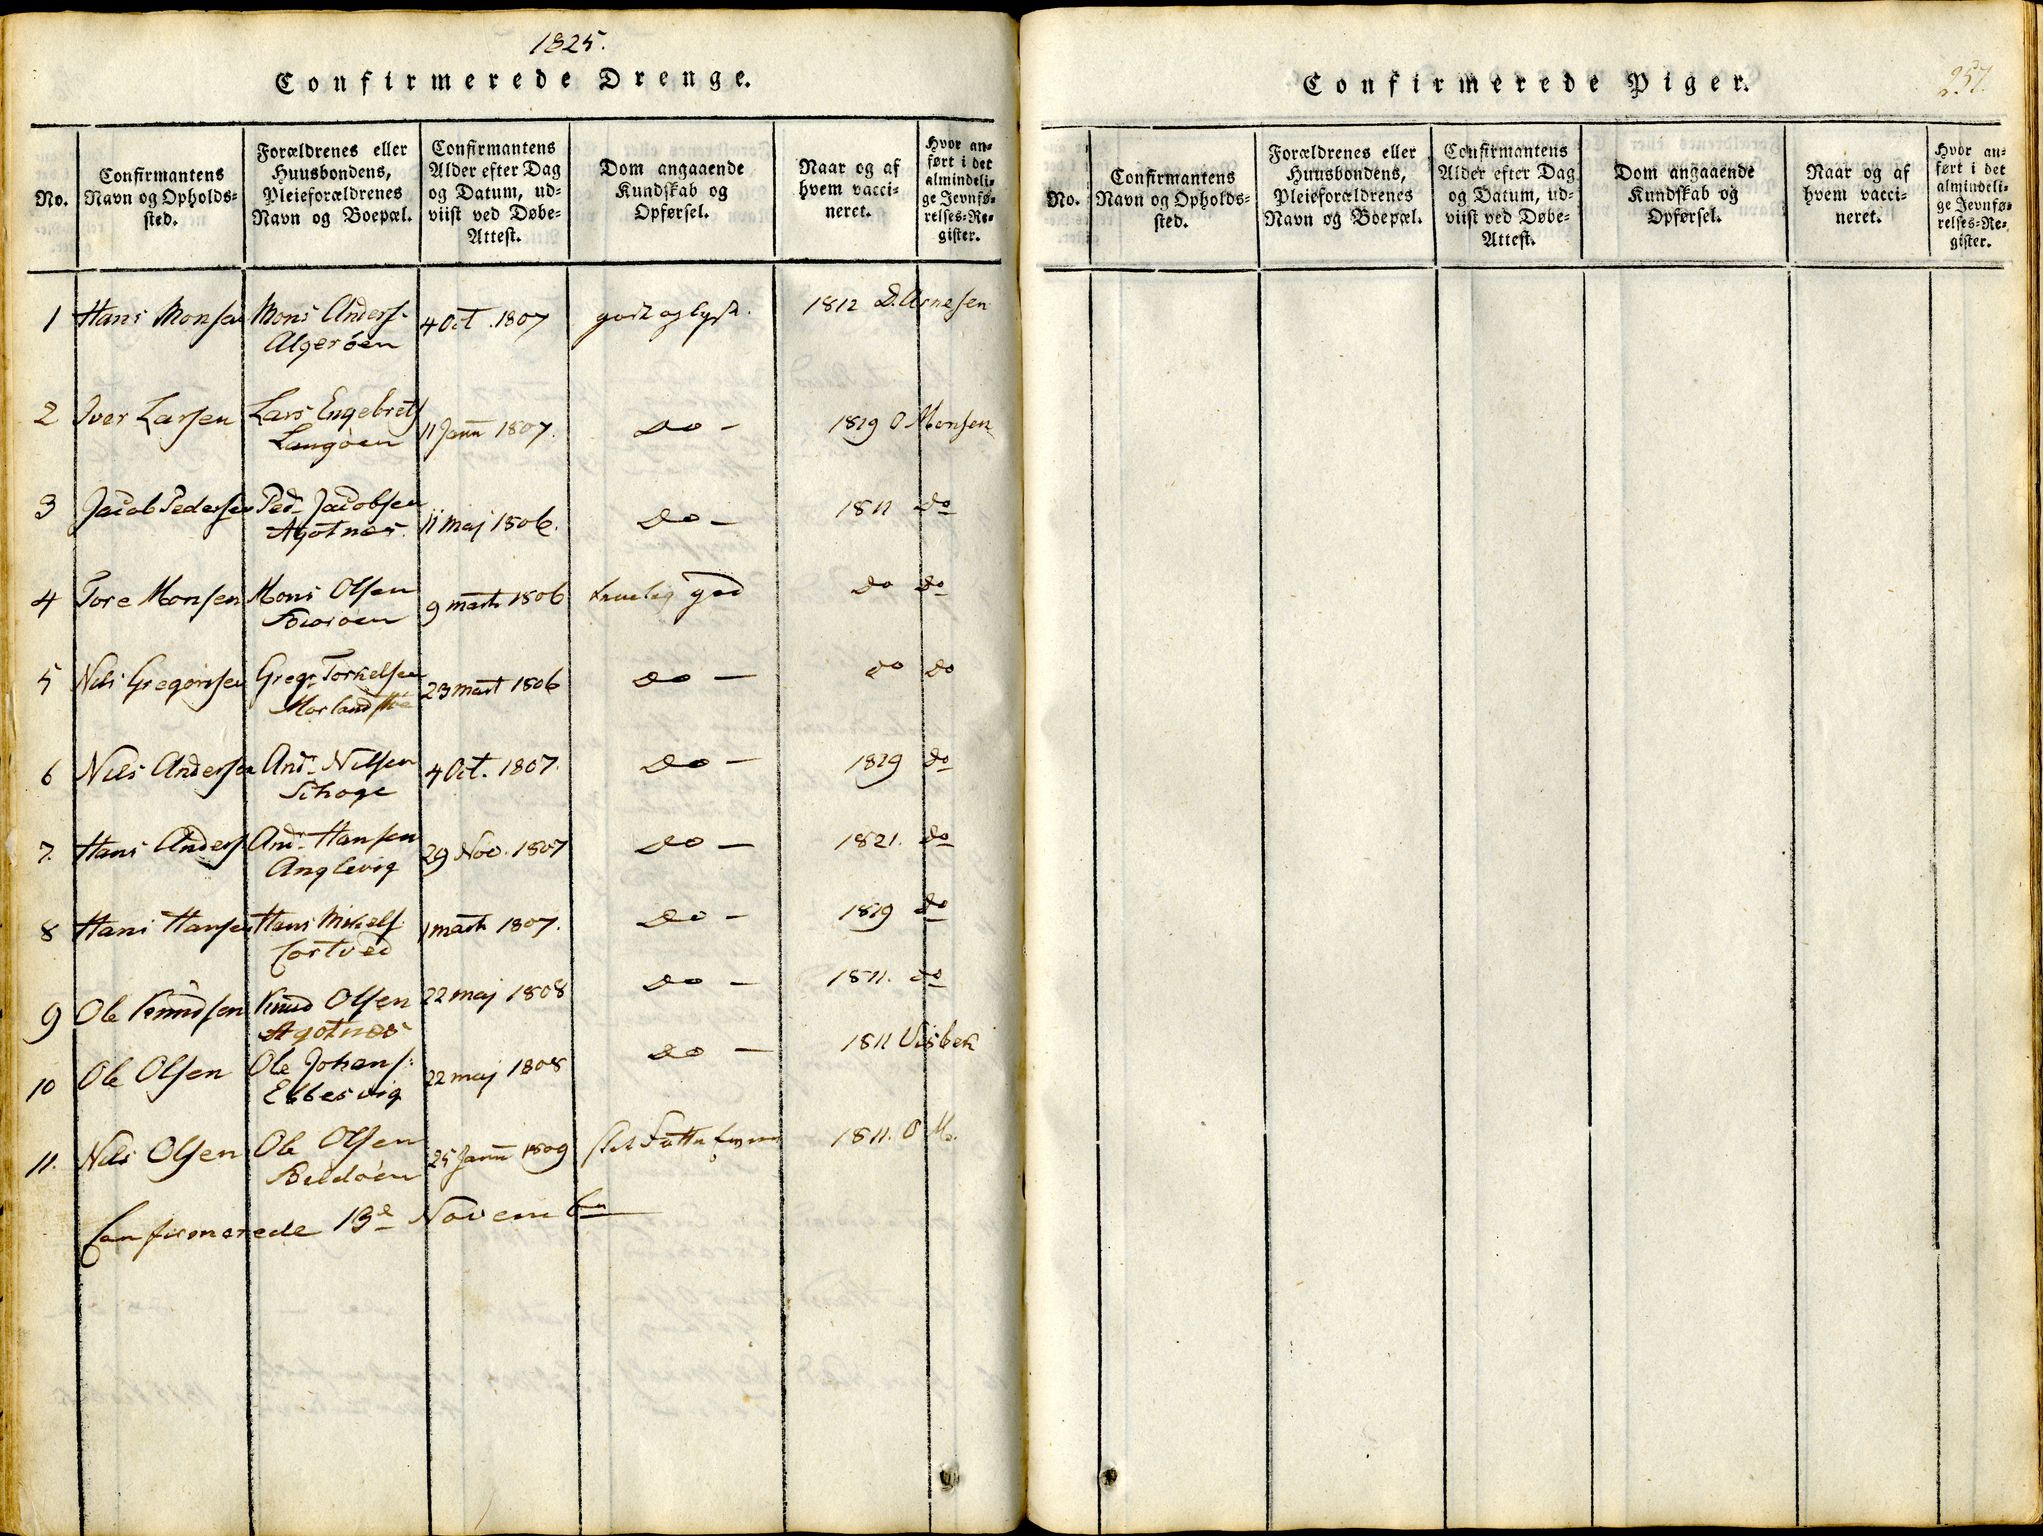 1825.
Confirmerede Drenge.
No.
Confirmantens
Navn og Opholds-
sted.
Forældrenes eller
Huusbondens,
Pleieforældrenes
Navn og Boepæl.
Confirmantens
Alder efter Dag
og Datum, ud-
viist ved Døbe-
Attest.
Dom angaaende
Kundskab og
Opførsel.
Naar og af
hvem vacci-
neret.
Hvor an-
ført i det
almindeli-
ge Jevnfø-
relses-Re-
gister.
1 Hans Monsen Mons Anders. 4 Oct. 1807 1812 D. Arnesen
Algerøen
2 Iver Larsen Lars Engebrets 11 Janu 1807. Do - 1819 O Monsen
Langøen
3 Jacob Pedersen Ped- Jacobsen 11 Maj 1806. Do - 1811 do
Agotnes.
4 Tore Monsen Mons Olsen 9 marts 1806 god do do
5 Nils Gregorsen Greg: Torkelsen 23 mart 1806 Do - do do
Morland
6 Nils Andersen And- Nilsen 4 Oct. 1807. Do - 1819 do
Schoge
7. Hans Anders. And- Hansen 29 Nov. 1807 Do - 1821. do
Anglevig
8 Hans Hansen Hans Mikels. 1 marts 1807. Do - 1819 do
Tortved
9 Ole Knudsen Knud Olsen 22 maj 1808 Do - 1811. do
Agotnes
10 Ole Olsen Ole Johans: 22 maj 1808 Do - 1811 Visbek
Ebbesvig
11. Nils Olsen Ole Olsen 25 Janu 1809 1811. O M.
Bildøen
Confirmerede 13de November
Confirmerede Piger.
257.
No.
Confirmantens
Navn og Opholds-
sted.
Forældrenes eller
Huusbondens,
Pleieforældrenes
Navn og Boepæl.
Confirmantens
Alder efter Dag
og Datum, ud-
viist ved Døbe-
Attest.
Dom angaaende
Kundskab og
Opførsel.
Naar og af
hvem vacci-
neret.
Hvor an-
ført i det
almindeli-
ge Jevnfø-
relses-Re-
gister.